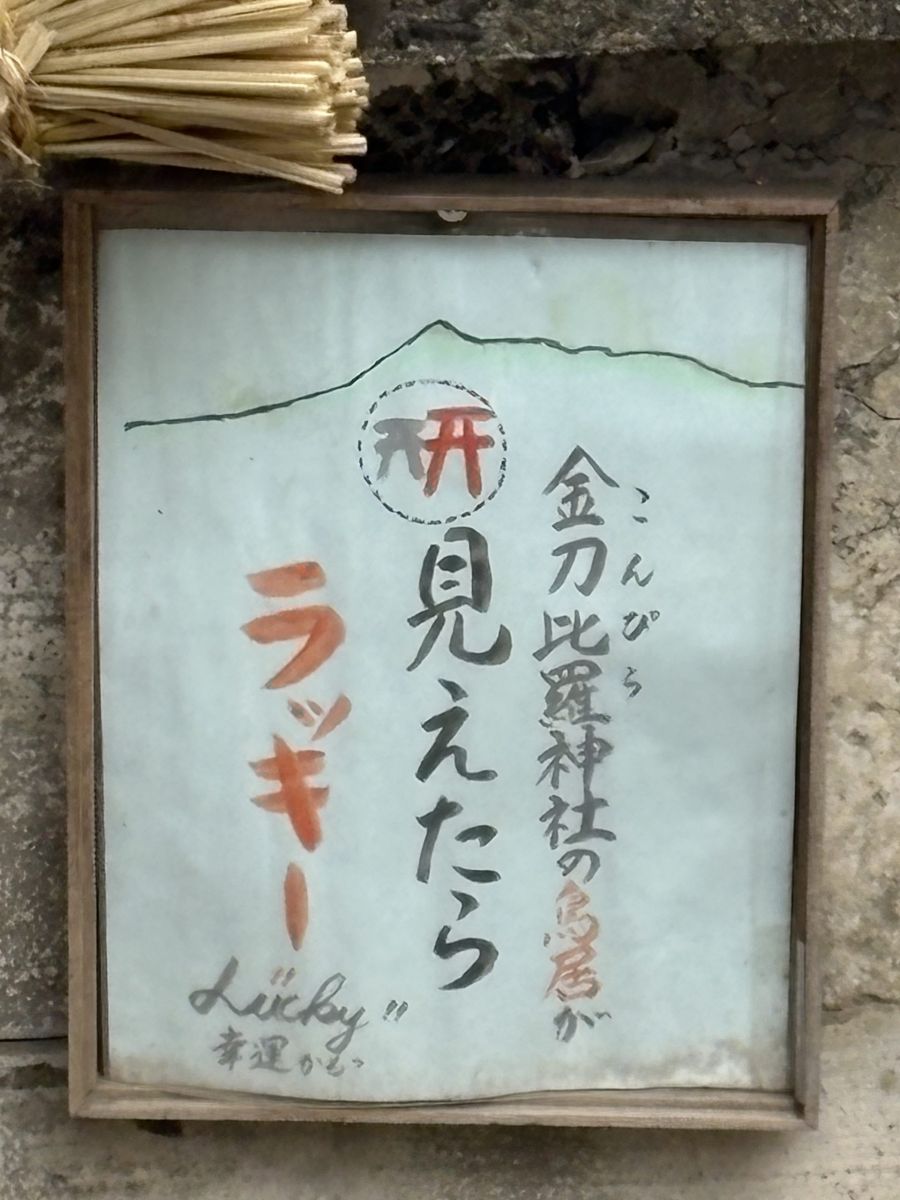 金刀比羅神社の鳥居が
こんぴら
見えたら
ラッキー
"Lucky"
幸運かも